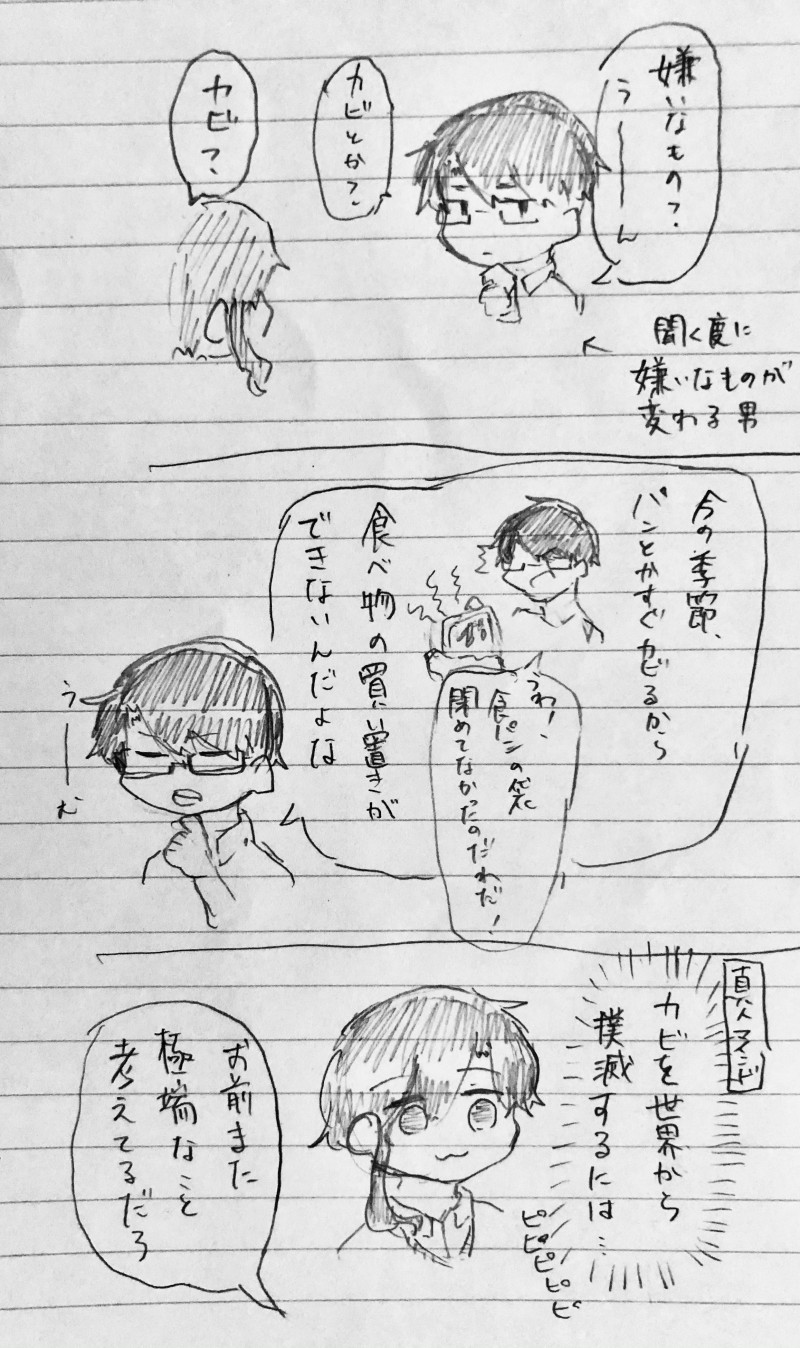 嫌いなもの?
うーーん
カビとか?
カビ?
聞く度に
嫌いなものが
変わる男
今の季節、
パンとかすぐカビるから
食べ物の買い置きが
できないんだよな
うわ!、
食パンの袋
閉めてなかったのだわだ!
うーーむ
カビを世界から
撲滅するには…
ピピピピピ
お前また
極端なこと
考えてるだろ